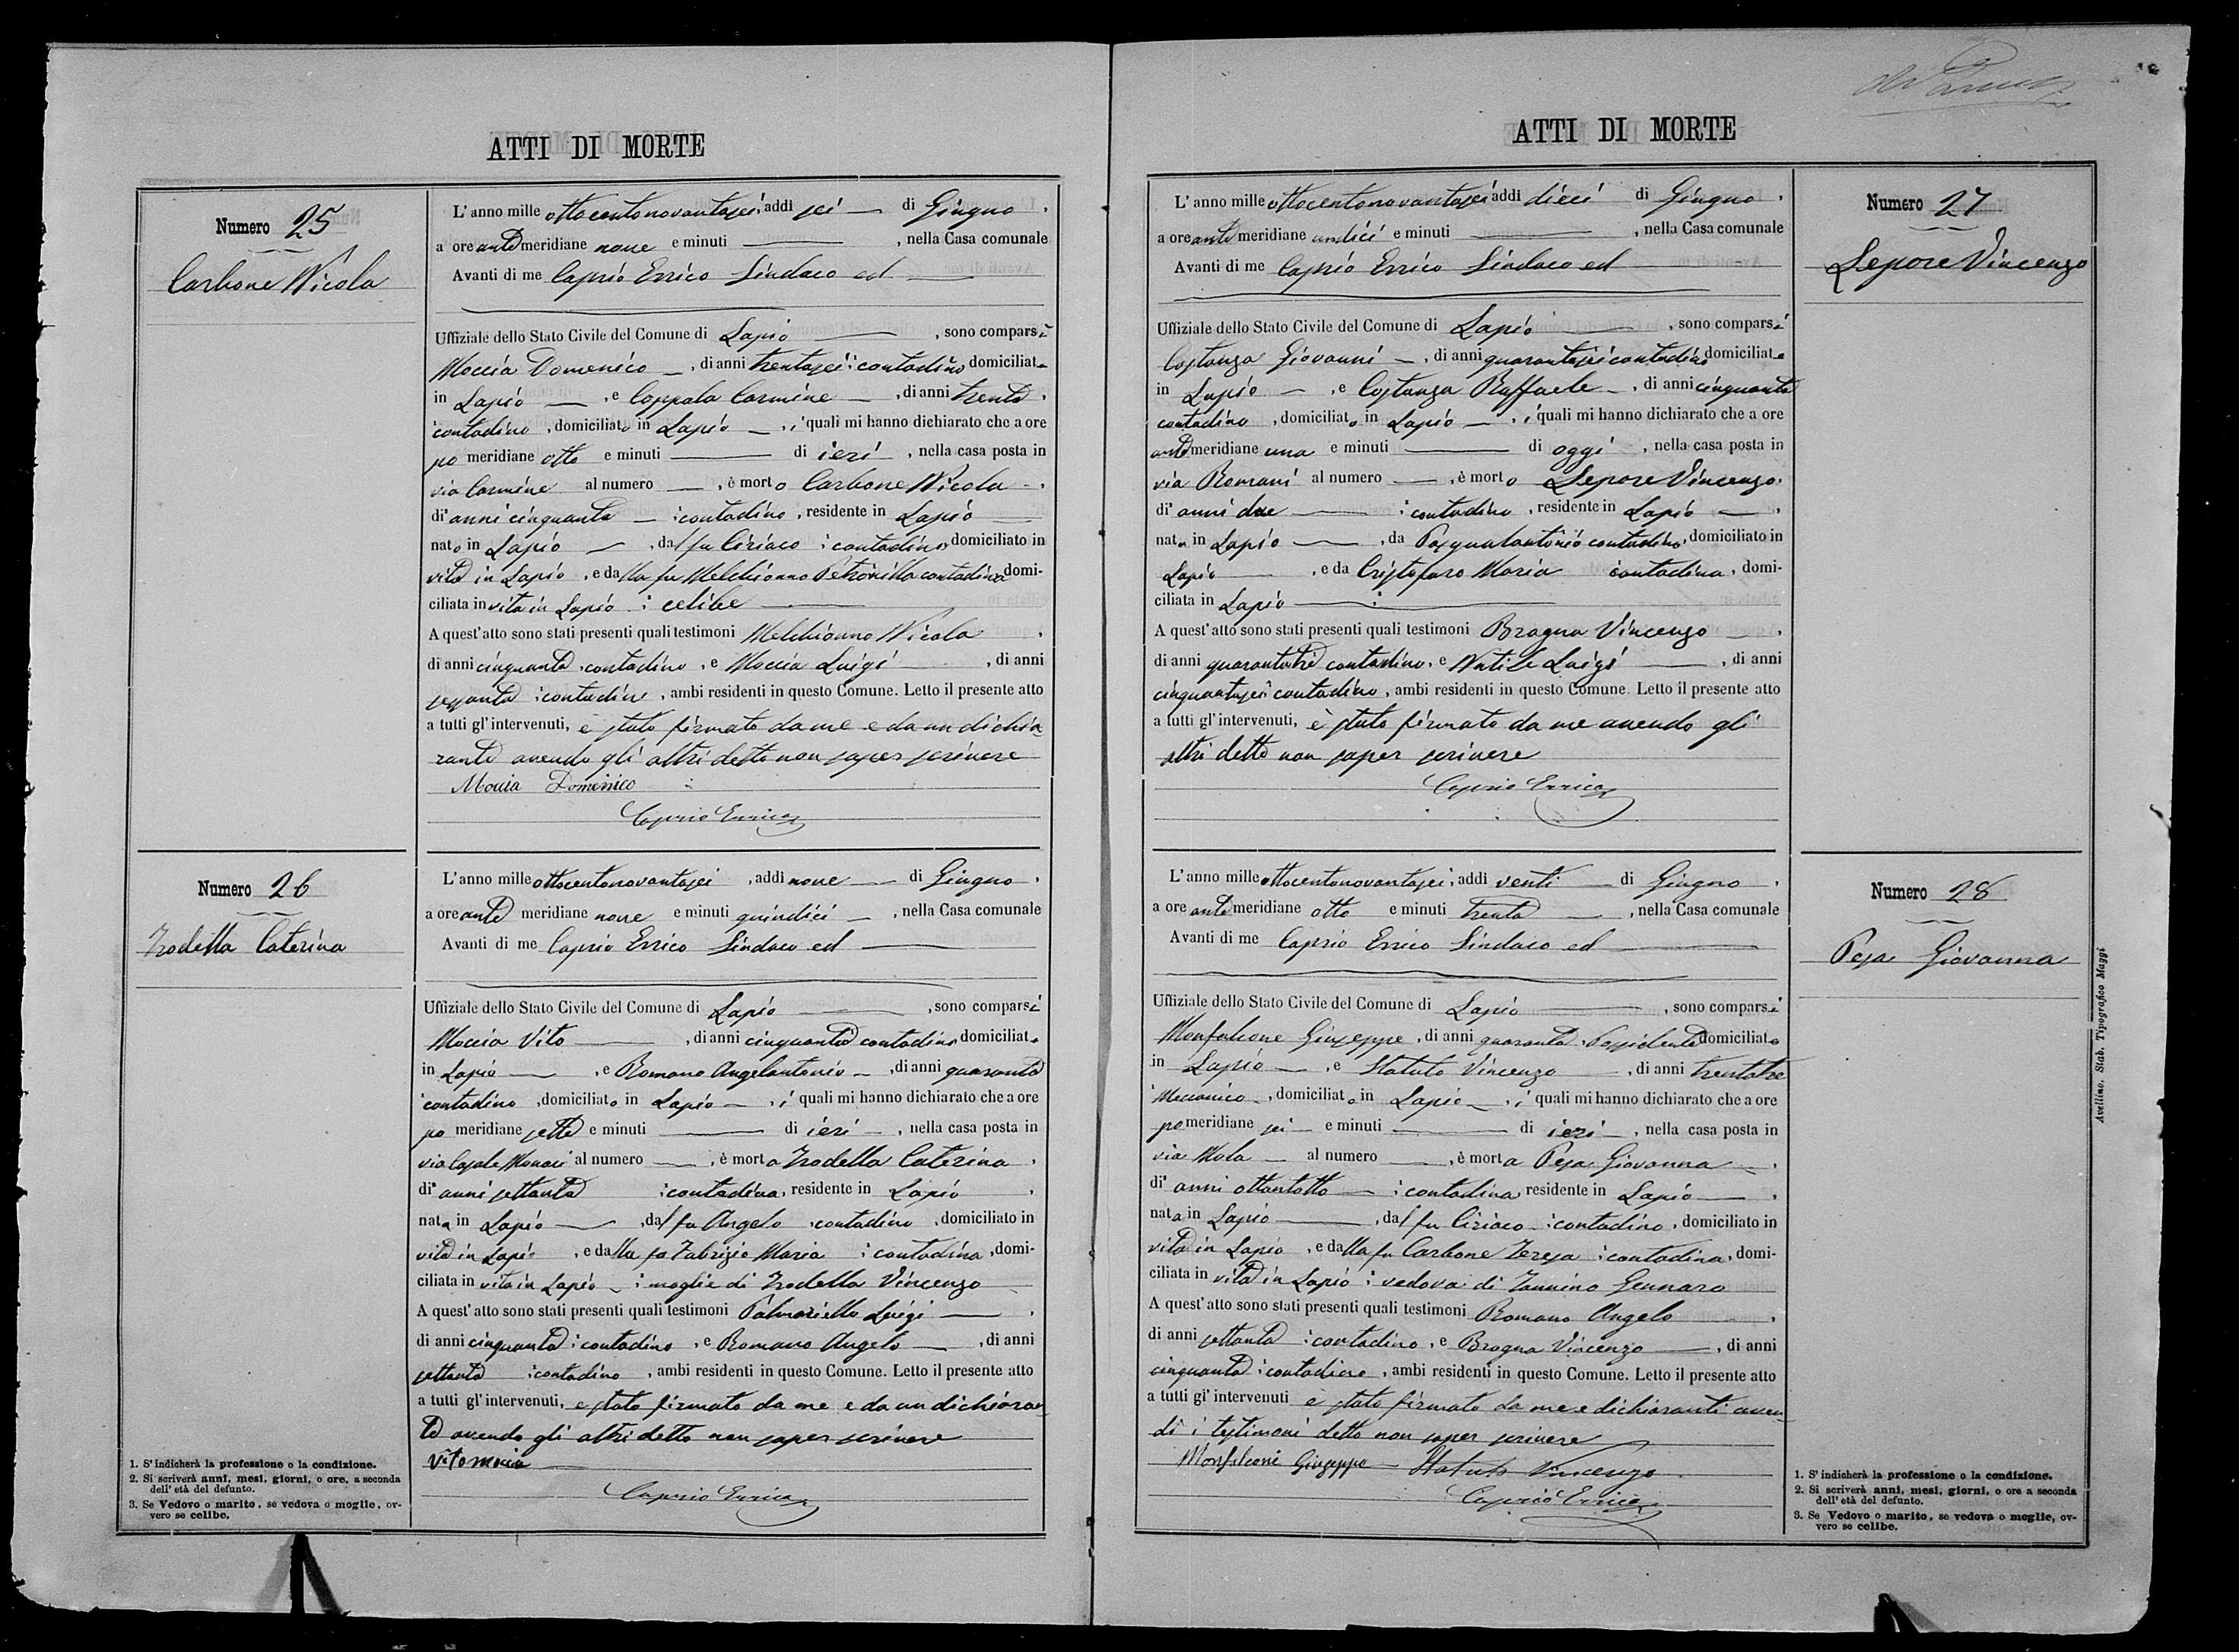 ATTI DI MORTE
Numero 25
Carbone Nicola
L'anno mille ottocentonovantasei, addì sei — di Giugno,
a ore ante meridiane nove e minuti —, nella Casa comunale
Avanti di me Caprio Errico Sindaco ed
Uffiziale dello Stato Civile del Comune di Lapio —, sono comparsi
Moccia Domenico —, di anni trentasei, contadino domiciliato
in Lapio —, e Coppola Carmine —, di anni trenta,
contadino, domiciliato in Lapio —, i quali mi hanno dichiarato che a ore
po meridiane otto e minuti — di ieri —, nella casa posta in
via Carmine al numero —, è morto Carbone Nicola —,
di anni cinquanta — contadino, residente in Lapio —
nato in Lapio —, dal fu Ciriaco, contadino, domiciliato in
vita in Lapio, e dalla fu Melchionno Petronilla contadina, domi-
ciliata in vita in Lapio; celibe —
A quest'atto sono stati presenti quali testimoni Melchionno Nicola,
di anni cinquanta, contadino, e Moccia Luigi —, di anni
sessanta, contadino, ambi residenti in questo Comune. Letto il presente atto
a tutti gl'intervenuti, è stato firmato da me e da un dichia
rante avendo gli altri detto non saper scrivere
Moccia Domenico
Caprio Errico
Numero 26
Trodella Caterina
L'anno mille ottocentonovantasei, addì nove — di Giugno,
a ore ante meridiane nove e minuti quindici —, nella Casa comunale
Avanti di me Caprio Errico Sindaco ed —
Uffiziale dello Stato Civile del Comune di Lapio —, sono comparsi
Moccia Vito —, di anni cinquanta contadino domiciliato
in Lapio —, e Romano Angelantonio —, di anni quaranta
contadino, domiciliato in Lapio —, i quali mi hanno dichiarato che a ore
po meridiane sette e minuti — di ieri —, nella casa posta in
via Casale Monaci al numero —, è morta Trodella Caterina,
di anni settanta, contadina, residente in Lapio,
nata in Lapio —, dal fu Angelo, contadino, domiciliato in
vita in Lapio, e dalla fu Fabrizio Maria, contadina, domi-
ciliata in vita in Lapio —; moglie di Trodella Vincenzo
A quest'atto sono stati presenti quali testimoni Palmariello Luigi —,
di anni cinquanta, contadino, e Romano Angelo —, di anni
settanta, contadino, ambi residenti in questo Comune. Letto il presente atto
a tutti gl'intervenuti, è stato firmato da me e da un dichiaran
te avendo gli altri detto non saper scrivere
Vito mocia
Caprio Errico
1. S'indicherà la professione o la condizione.
2. Si scriverà anni, mesi, giorni, o ore, a seconda
dell'età del defunto.
3. Se Vedovo o marito, se vedova o moglie, ov-
vero se celibe.
ATTI DI MORTE
Numero 27
Lepore Vincenzo
L'anno mille ottocentonovantasei addì dieci di Giugno,
a ore ante meridiane undici e minuti —, nella Casa comunale
Avanti di me Caprio Errico Sindaco ed
Uffiziale dello Stato Civile del Comune di Lapio —, sono comparsi
Costanza Giovanni —, di anni quarantasei contadino domiciliato
in Lapio —, e Costanza Raffaele —, di anni cinquanta
contadino, domiciliato in Lapio —, i quali mi hanno dichiarato che a ore
ante meridiane una e minuti — di oggi, nella casa posta in
via Romani al numero —, è morto Lepore Vincenzo,
di anni due —, contadino, residente in Lapio —,
nato in Lapio —, da Pasqualantonio contadino, domiciliato in
Lapio —, e da Cristofaro Maria contadina, domi-
ciliata in Lapio —
A quest'atto sono stati presenti quali testimoni Bragna Vincenzo —,
di anni quarantatre contadino, e Natile Luigi —, di anni
cinquantasei contadino, ambi residenti in questo Comune. Letto il presente atto
a tutti gl'intervenuti, è stato firmato da me avendo gli
altri detto non saper scrivere
Caprio Errico
Numero 28
Pesa Giovanna
L'anno mille ottocentonovantasei, addì venti — di Giugno,
a ore ante meridiane otto e minuti trenta —, nella Casa comunale
Avanti di me Caprio Errico Sindaco ed —
Uffiziale dello Stato Civile del Comune di Lapio —, sono comparsi
Monfalcone Giuseppe, di anni quaranta, Possidente domiciliato
in Lapio —, e Statuto Vincenzo —, di anni trentatre
Meccanico —, domiciliato in Lapio —, i quali mi hanno dichiarato che a ore
po meridiane sei — e minuti — di ieri —, nella casa posta in
via Mola — al numero —, è morta Pesa Giovanna —,
di anni ottantotto —, contadina residente in Lapio —,
nata in Lapio —, dal fu Ciriaco, contadino, domiciliato in
vita in Lapio, e dalla fu Carbone Teresa, contadina, domi-
ciliata in vita in Lapio; vedova di Iannino Gennaro
A quest'atto sono stati presenti quali testimoni Romano Angelo —,
di anni settanta, contadino, e Bragna Vincenzo —, di anni
cinquanta, contadino, ambi residenti in questo Comune. Letto il presente atto
a tutti gl'intervenuti è stato firmato da me e dichiaranti aven
di i testimoni detto non saper scrivere
Monfalcone Giuseppe Statuto Vincenzo
Caprio Errico
1. S'indicherà la professione o la condizione.
2. Si scriverà anni, mesi, giorni, o ore a seconda
dell'età del defunto.
3. Se Vedovo o marito, se vedova o moglie, ov-
vero se celibe.
Avellino. Stab. Tipografico Maggi